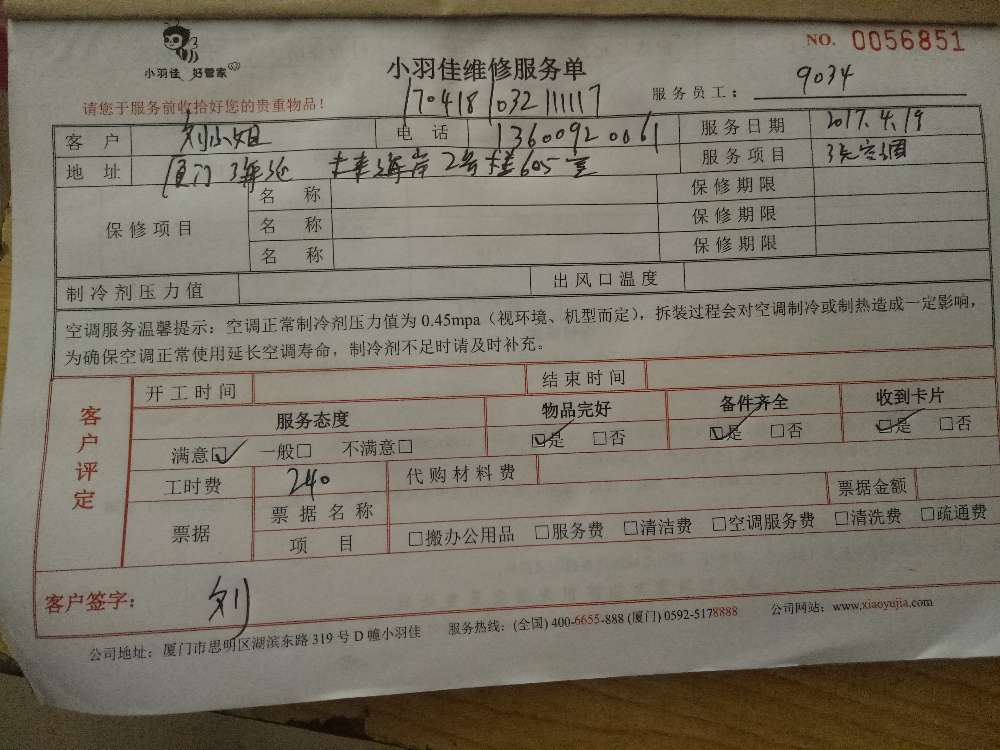 NO. 0056851
小羽佳 好管家
小羽佳维修服务单
170418103211117
服务员工： 9034
请您于服务前收拾好您的贵重物品！
客 户 刘小姐 电 话 13600920061 服务日期 2017.4.19
地 址 厦门 海岸2号楼605室 服务项目 空调
保修项目
名 称 保修期限
名 称 保修期限
名 称 保修期限
制冷剂压力值 出风口温度
空调服务温馨提示：空调正常制冷剂压力值为 0.45mpa（视环境、机型而定），拆装过程会对空调制冷或制热造成一定影响，
为确保空调正常使用延长空调寿命，制冷剂不足时请及时补充。
客户评定
开工时间 结束时间
服务态度 物品完好 备件齐全 收到卡片
满意☑ 一般□ 不满意□ ☑是 □否 ☑是 □否 ☑是 □否
工时费 240 代购材料费
票据 票据名称 票据金额
项 目 □搬办公用品 □服务费 □清洁费 □空调服务费 □清洗费 □疏通费
客户签字： 刘
公司地址：厦门市思明区湖滨东路 319 号 D 幢小羽佳 服务热线：(全国) 400-6655-888 (厦门) 0592-5178888 公司网站：www.xiaoyujia.com